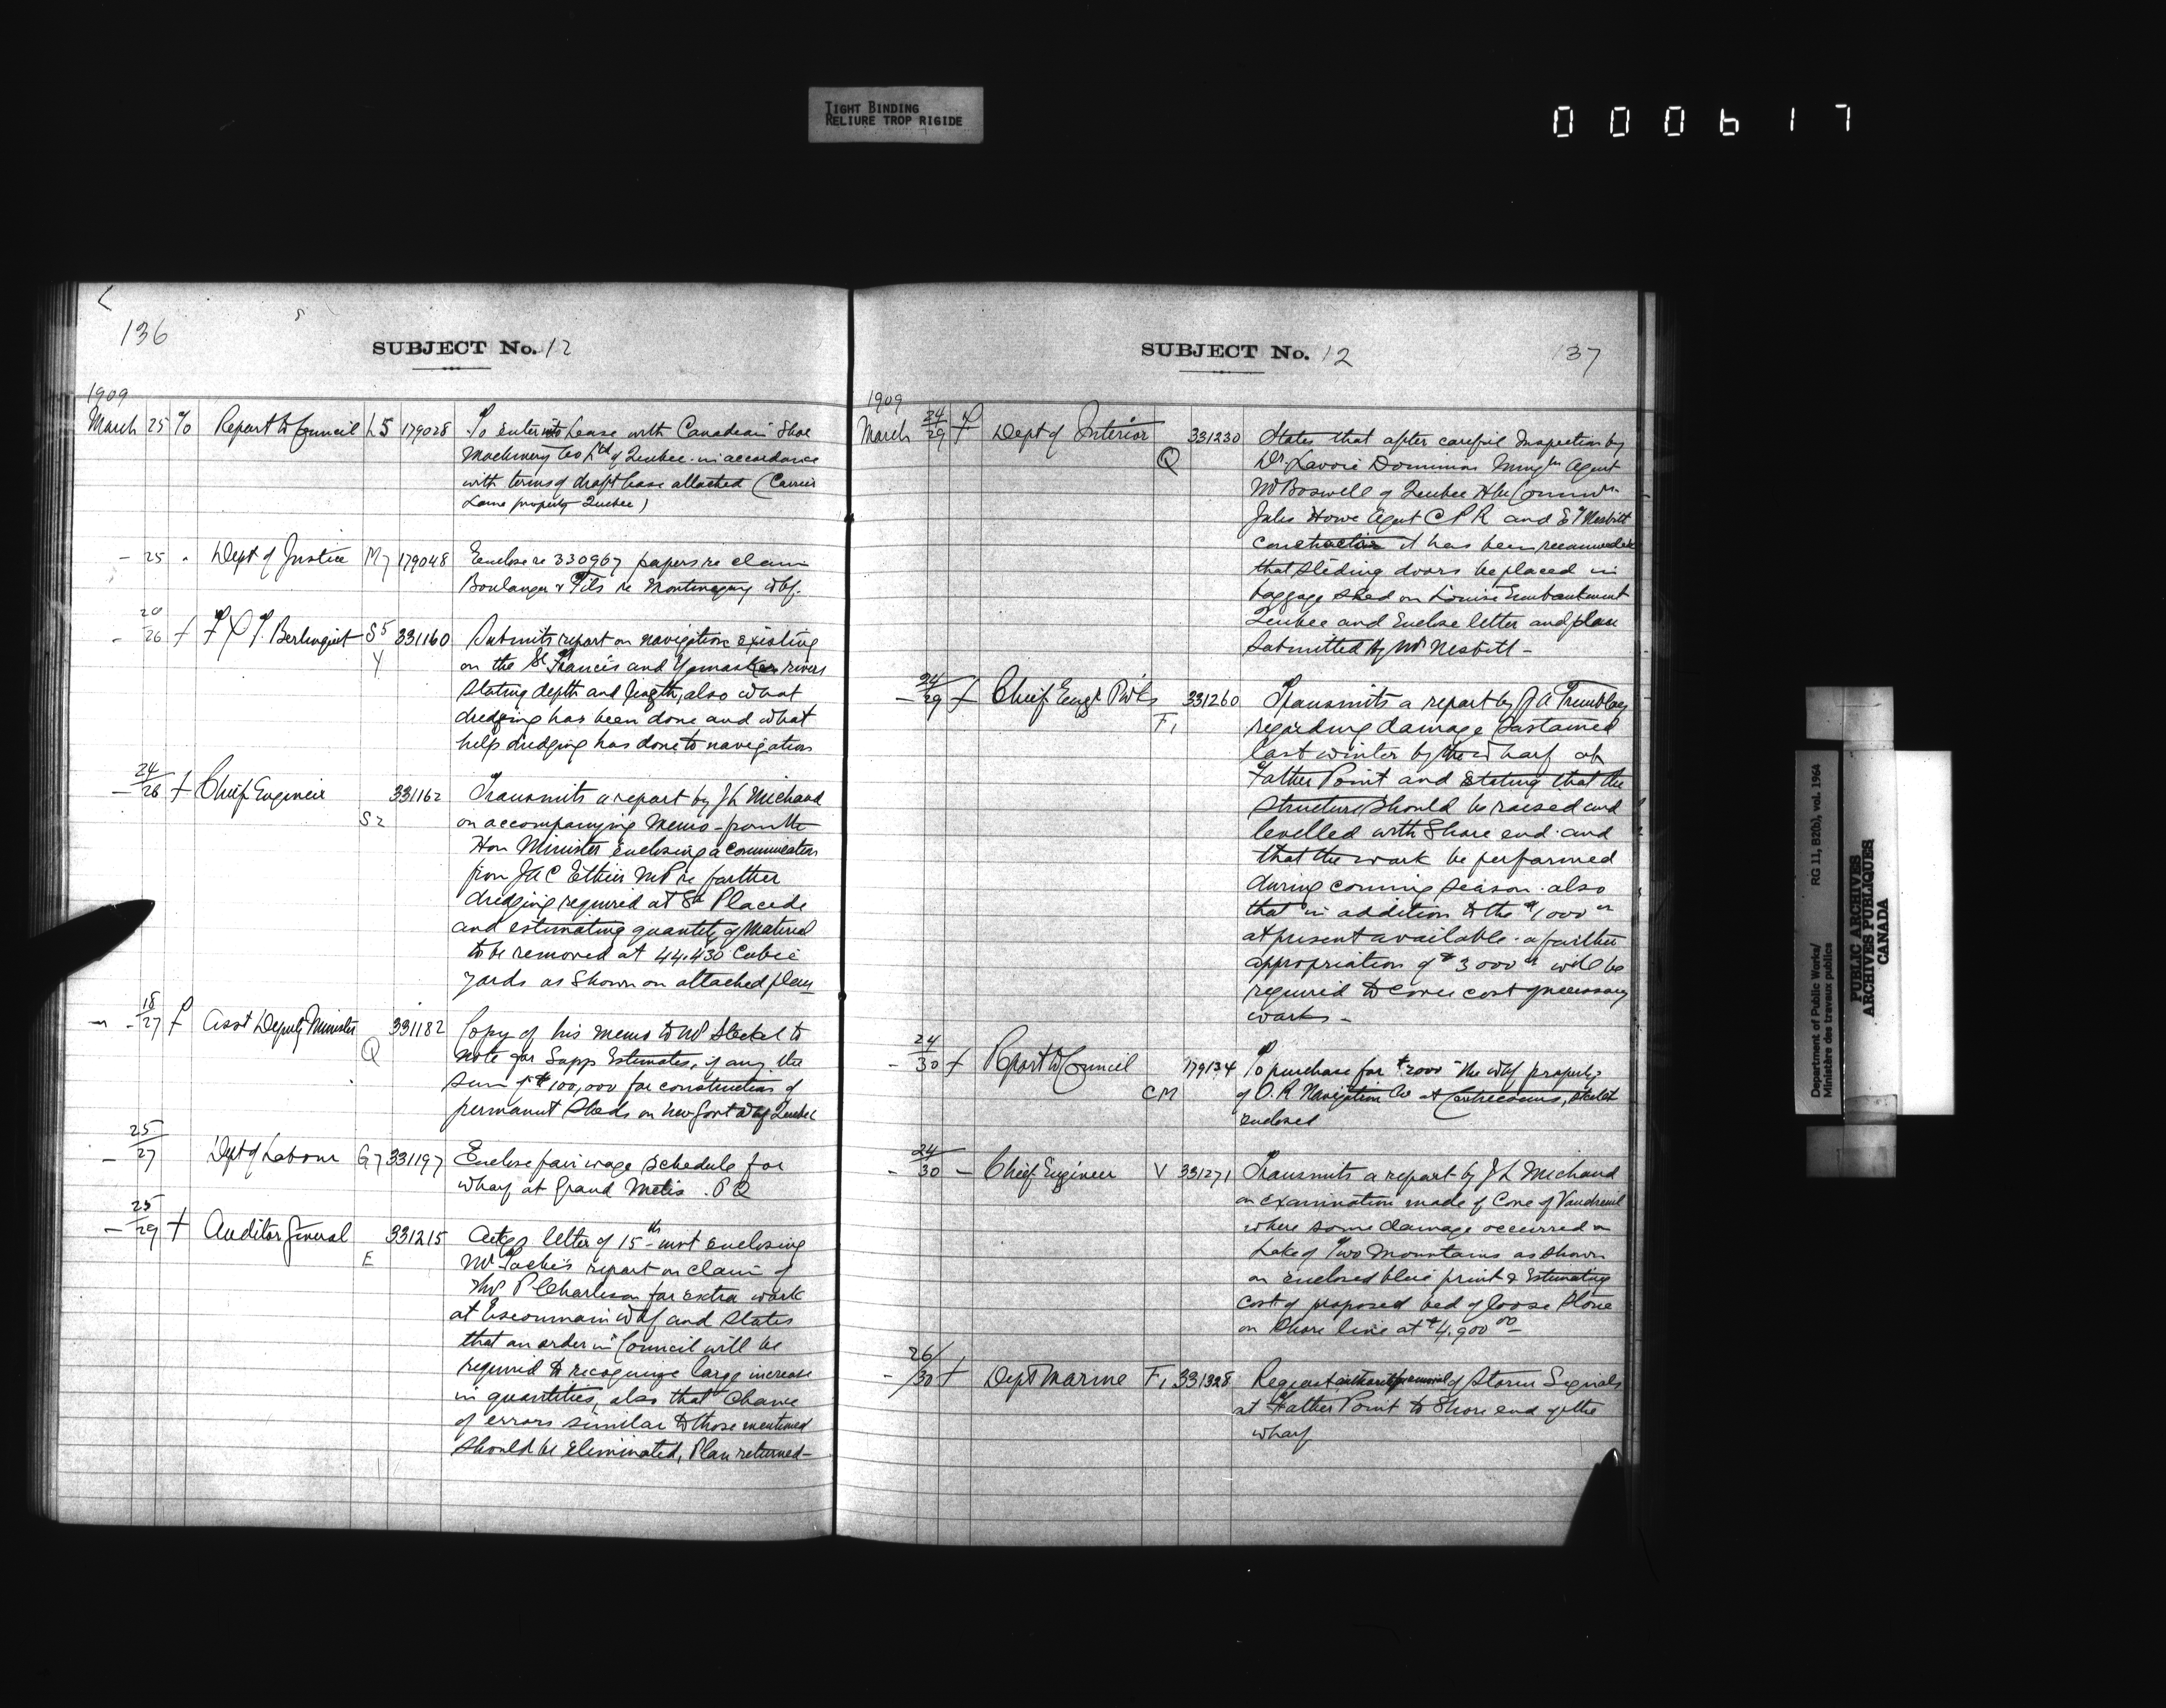 TIGHT BINDING
RELIURE TROP RIGIDE
000617
136
SUBJECT No. 12
1909
March 25 % Report to Council L5 179028 To enter into Lease with Canadian Shoe
Machinery Co Ltd of Quebec in accordance
with terms of draft lease attached (Carrier
Laine property Quebec)
– 25 " Dept of Justice M7 179048 Enclose re 330967 papers re claim
Boulanger & Fils re Montmagny Whf.
– 20/26 f F X T. Berlinguet S5 331160 Submits report on navigation existing
Y on the St Francis and Yamaska rivers
stating depth and length, also what
dredging has been done and what
help dredging has done to navigation
– 24/26 f Chief Engineer 331162 Transmits a report by J L Michaud
S2 on accompanying Memo from the
Hon Minister enclosing a communication
from J A C Ethier MP re further
dredging required at St Placide
and estimating quantity of Material
to be removed at 44.430 Cubic
yards as shown on attached plan
– 18/27 f Asst Deputy Minister 331182 Copy of his memo to Mr Steckel to
Q note for Supp Estimates, if any the
sum of $100,000 for construction of
permanent Sheds on new Govt Whf Quebec
– 25/27 Dept of Labour G7 331197 Enclose fair wage schedule for
wharf at Grand Metis. P Q
– 25/29 f Auditor General 331215 letter of 15th inst enclosing
E Mr Tache's report on claim of
Mr P Charleson for extra work
at Escoumain Whf and states
that an order in Council will be
required to recognize large increase
in quantities, also that chance
of errors similar to those mentioned
should be eliminated, Plan returned –
SUBJECT No. 12
137
1909
March 24/29 f Dept of Interior 331230 States that after careful Inspection by
Q Dr. Lavoie Dominion Agent
Mr Boswell of Quebec Hbr
Jules Howe Agent C P R and E T Nesbitt
it has been recommended
that sliding doors be placed in
baggage shed on Louise Embankment
Quebec and Enclose letter and plan
submitted by Mr Nesbitt –
– 24/29 f Chief Engr PWks 331260 Transmits a report by J A Tremblay
F1 regarding damage sustained
last winter by the wharf at
Father Point and stating that the
structure should be raised and
levelled with Shore end and
that the work be performed
during coming season. also
that in addition to the $1000 00
at present available a further
appropriation of $3000 00 will be
required to cover cost of necessary
works –
– 24/30 f Report to Council 179134 To purchase for $2000 the Whf property
CM of O. R Navigation Co at Contrecoeur, sketch
enclosed
– 24/30 – Chief Engineer V 331271 Transmits a report by J L Michaud
on examination made of Cove of Vaudreuil
where some damage occurred on
Lake of Two Mountains as shown
on enclosed blue print & Estimating
cost of proposed bed of loose stone
on Shore line at $4,900 00 –
– 26/30 f Dept Marine F1 331328 Request removal of Storm Signals
at Father Point to Shore end of the
wharf
Department of Public Works/
Ministère des travaux publics
RG 11, B2(b), vol. 1964
PUBLIC ARCHIVES
ARCHIVES PUBLIQUES
CANADA